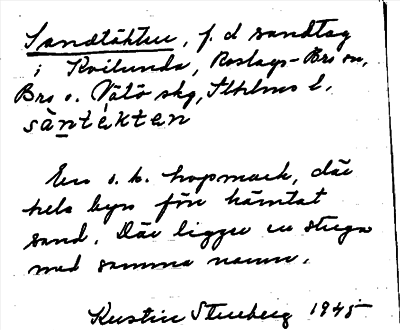 Sandtäkten, f. d. sandtag
i Kvilunda, Roslags-Bro sn,
Bro o. Vätö skg, Sthlms l.
sàntèkten
En s. k. hopmark, där
hela byn förr hämtat
sand. Där ligger en stuga
med samma namn.
Kerstin Stenberg 1945